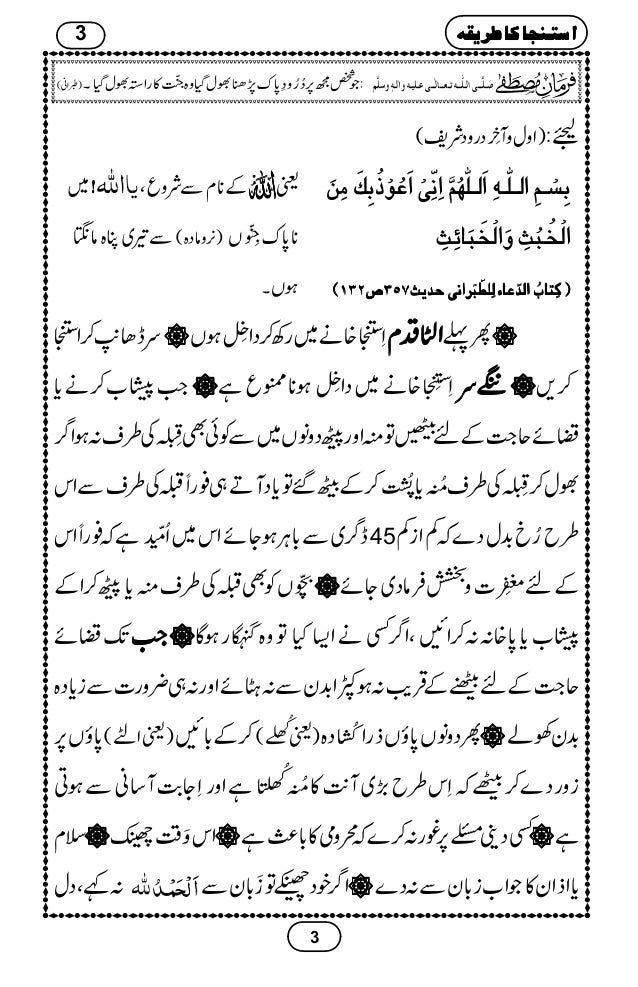 استنجا کا طریقہ
3
فرمانِ مصطفٰے صلَّی اللہ تعالٰی علیہ واٰلہٖ وسلَّم :جو شخص مجھ پر دُرُودِ پاک پڑھنا بھول گیا وہ جنّت کا راستہ بھول گیا ۔ (طبرانی)
لیجئے : (اول و آخِر درود شریف)
بِسْمِ اللّٰہِ اَللّٰھُمَّ اِنِّیۡۤ اَعُوْذُبِکَ مِنَ
الْخُبُثِ وَالْخَبَائِثِ
یعنی اللہ کے نام سے شروع ، یا اللہ! میں
ناپاک جِنّوں (نرو مادہ) سے تیری پناہ مانگتا
ہوں۔
(کِتابُ الدّعاء لِلطَّبَرانی حدیث ۳۵۷ ص ۱۳۲)
پھر پہلے الٹا قدم اِستنجا خانے میں رکھ کر داخِل ہوں سر ڈھانپ کر استنجا
کریں ننگے سر اِستِنجا خانے میں داخل ہونا ممنوع ہے جب پیشاب کرنے یا
قضائے حاجت کے لئے بیٹھیں تو منہ اور پیٹھ دونوں میں سے کوئی بھی قِبلہ کی طرف نہ ہو اگر
بھول کر قِبلہ کی طرف مُنہ یا پُشت کر کے بیٹھ گئے تو یاد آتے ہی فوراً قبلہ کی طرف سے اس
طرح رُخ بدل دے کہ کم از کم 45 ڈگری سے باہر ہو جائے اس میں اُمّید ہے کہ فوراً اس
کے لئے مغفِرت و بخشش فرما دی جائے بچّوں کو بھی قبلہ کی طرف منہ یا پیٹھ کرا کے
پیشاب یا پاخانہ نہ کرائیں ، اگر کسی نے ایسا کیا تو وہ گنہگار ہوگا جب تک قضائے
حاجت کے لئے بیٹھنے کے قریب نہ ہو کپڑا بدن سے نہ ہٹائے اور نہ ہی ضرورت سے زیادہ
بدن کھولے پھر دونوں پاؤں ذرا کُشادہ (یعنی کُھلے) کر کے بائیں (یعنی الٹے) پاؤں پر
زور دے کر بیٹھے کہ اِس طرح بڑی آنت کا مُنہ کُھلتا ہے اور اِجابت آسانی سے ہوتی
ہے کسی دینی مسئلے پر غور نہ کرے کہ محرومی کا باعث ہے اس وَقت چھینک سلام
یا اذان کا جواب زبان سے نہ دے اگر خود چھینکے تو زَبان سے اَلْحَمْدُلِلّٰہ نہ کہے ، دل
3